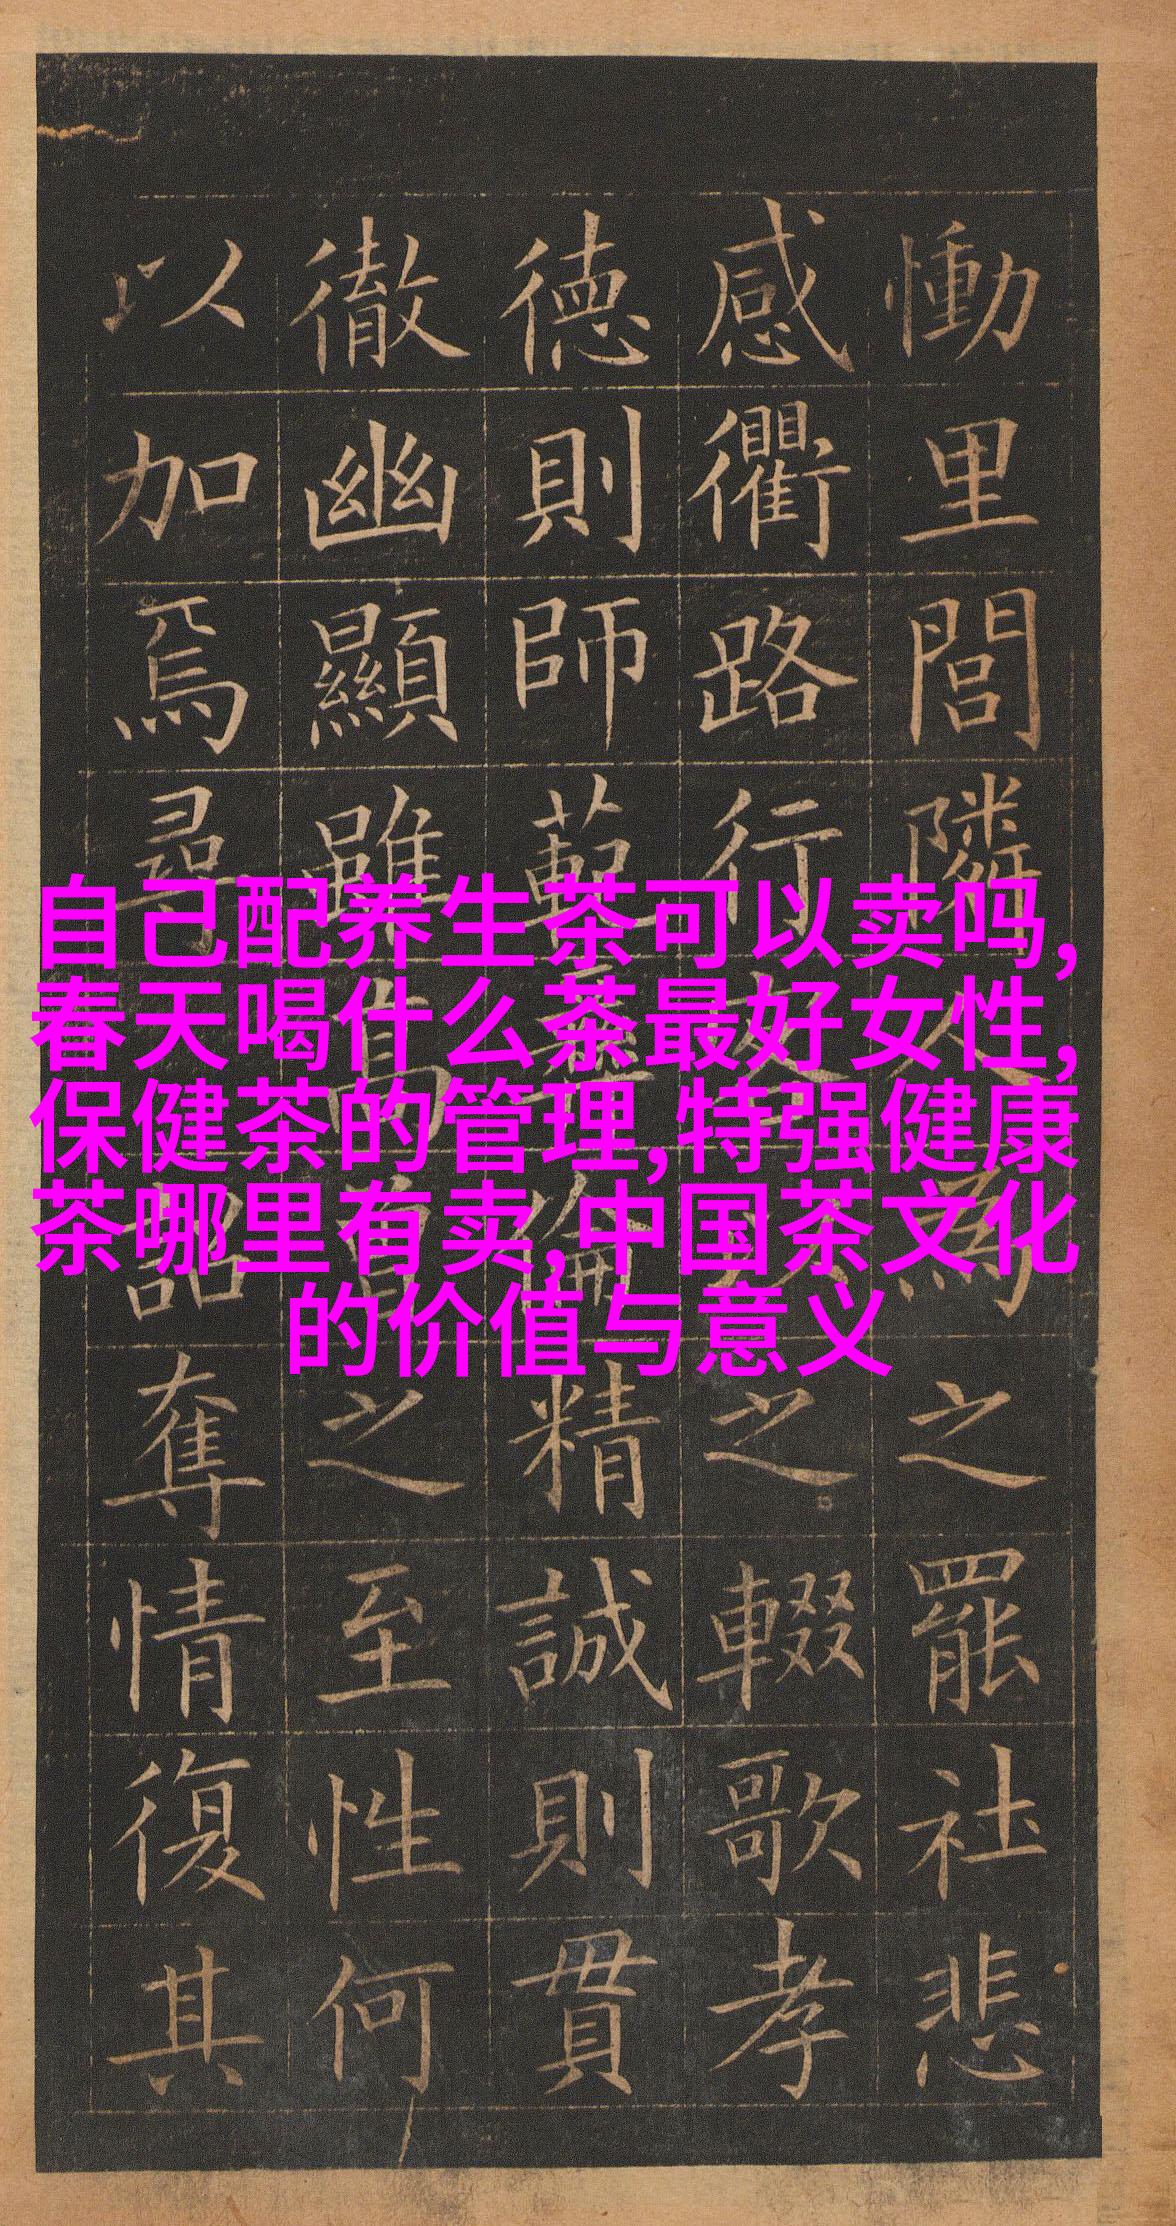 自己配养生茶可以卖吗,
春天喝什么茶最好女性,
保健茶的管理,特强健康
茶哪里有卖,中国茶文化
的价值与意义
慟里閭隣人為之罷社悲
感衢路行之輟歌孝
德則師範倫精誠則貫
徹幽顯雖高曾之至性何
以加焉尋詔奪情復其